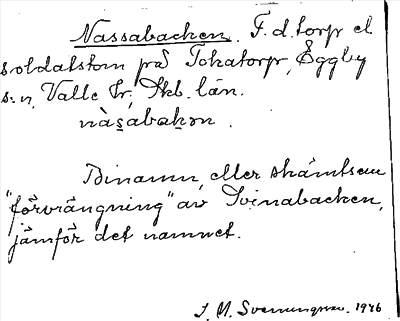 Nassabacken. F. d. torp el
soldatstom på Tokatorp, Eggby
s:n, Valle hr, Skb. län.
nàsabakən.
Binamn, eller skämtsam
"förvrängning" av Svinabacken,
jämför det namnet.
J. M. Svenungsson. 1946